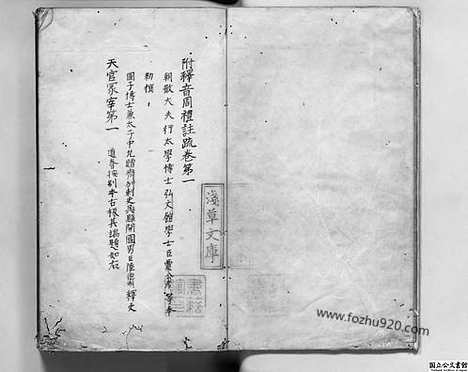 附釋音周禮註疏卷第一
朝散大夫行太學博士弘文館學士臣賈公彥等奉
勅撰
國子博士兼太子中允贈齊州刺史吳縣開國男臣陸德明釋文
天官冢宰第一
道春按別本右旁其議題如右
淺草文庫
www.fozhu920.com
国立公文書館